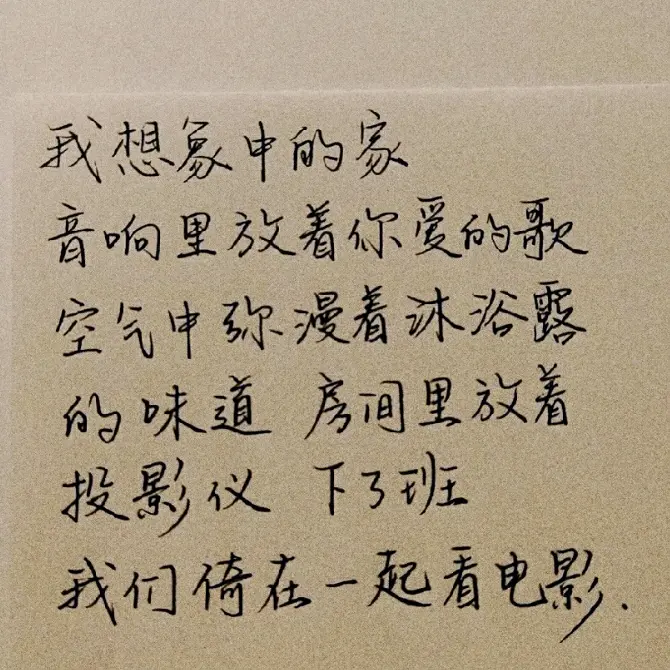 我想象中的家
音响里放着你爱的歌
空气中弥漫着沐浴露
的味道 房间里放着
投影仪 下了班
我们倚在一起看电影.